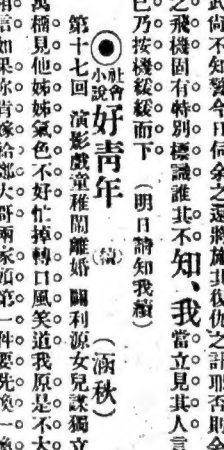 武尙不知
余之
之飛機固有特別標識誰其不知、我當立見其人言
已乃按機緩緩而下（明日請知我續）
社會小說 好靑年（續）（涵秋）
第十七回 演影戲童稚鬧離婚 關利源女兒謀獨立
萬福見他姊姊氣色不好忙掉轉口風笑道我原是不大
相信如果你肯嫁給鄭大哥兩家頭第一件要先